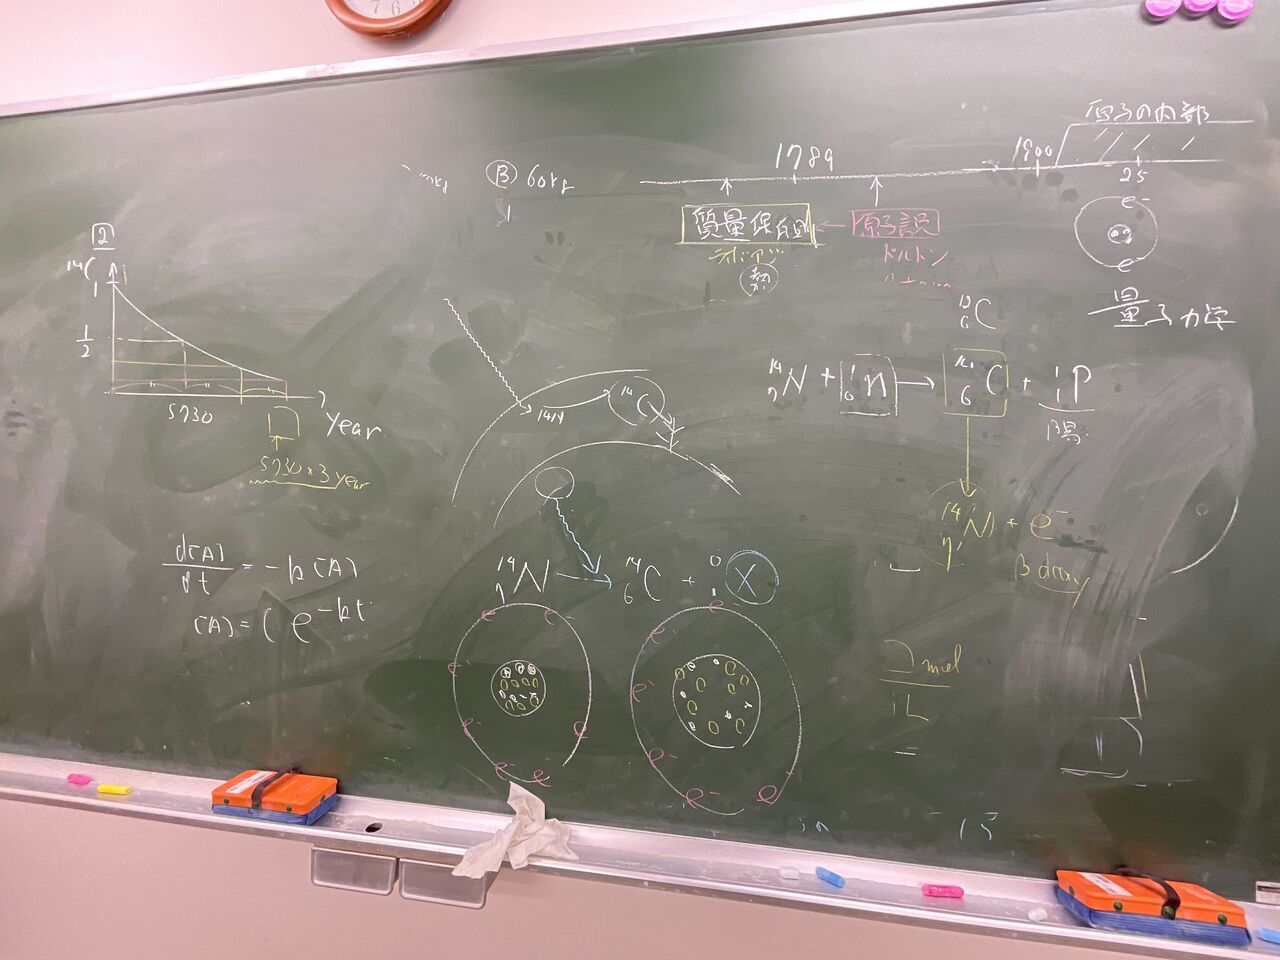 原子の内部
1789
1900
25
B 60kg
質量保存則
原子説
ラボアジ
ドルトン
熱
e-
e
量子力学
2
14C
1
1/2
5730
year
5730×3 year
14N
14C
12 6 C
14 7 N + 1 0 n → 14 6 C + 1 1 P
陽
14 7 N + e-
β decay
d[A]/dt = -k[A]
[A] = C e-kt
14 7 N → 14 6 C + 0 1 X
e- e- e- e- e- e- e-
e- e- e- e- e- e
mol
1L
=